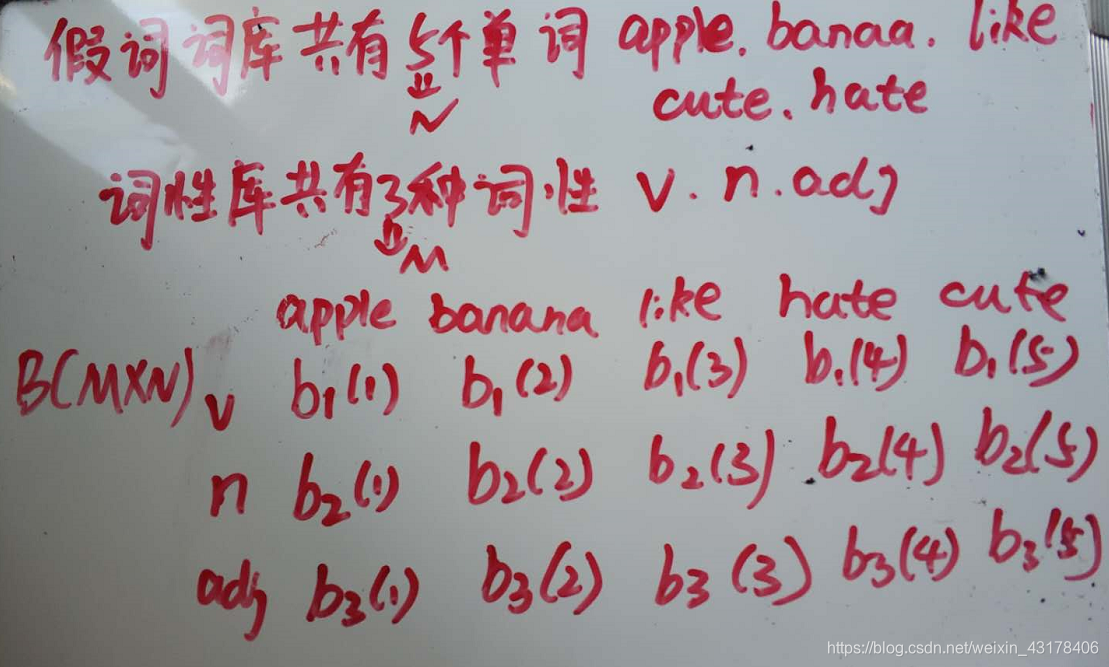 假词词库共有5个单词 apple. banaa. like
cute. hate
N
词性库共有3种词性 v. n. adj
M
apple banana like hate cute
B(M×N) v b1(1) b1(2) b1(3) b1(4) b1(5)
n b2(1) b2(2) b2(3) b2(4) b2(5)
adj b3(1) b3(2) b3(3) b3(4) b3(5)
https://blog.csdn.net/weixin_43178406